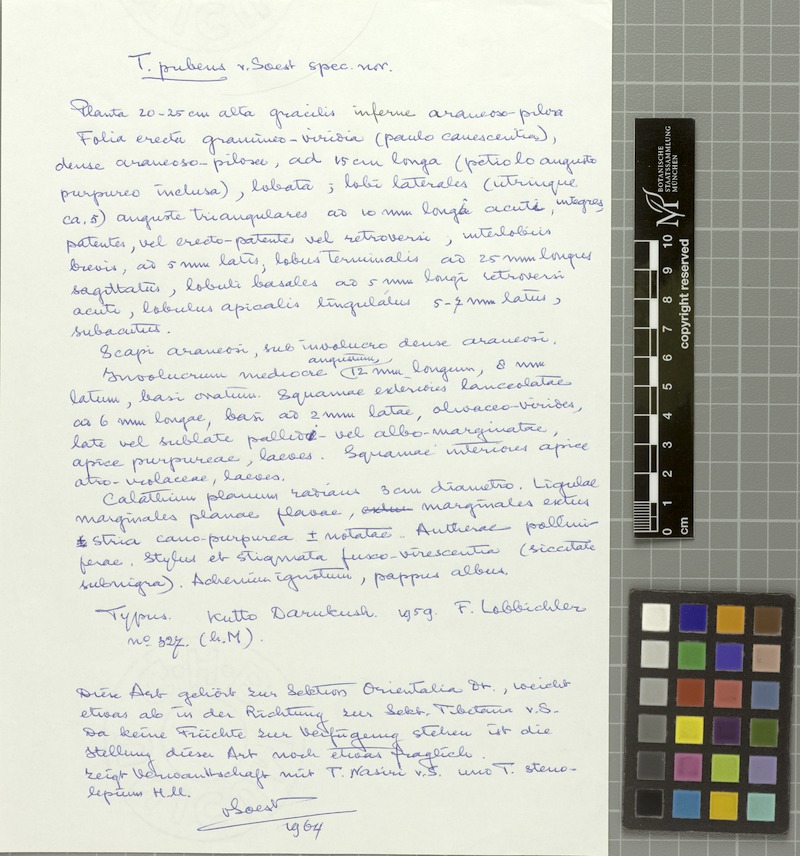 T. pubens v. Soest spec. nov.
Planta 20-25 cm alta gracilis inferne araneoso-pilosa
Folia erecta gramineo-viridia (paulo canescentia),
dense araneoso-pilosa, ad 15 cm longa (petiolo angusto
purpureo inclusa), lobata; lobi laterales (utrinque
ca. 5) anguste triangulares ad 10 mm longi acuti, integres
patentes, vel erecto-patentes vel retroversi, interlobiis
brevis, ad 5 mm latis, lobus terminalis ad 25 mm longus
sagittatus, lobuli basales ad 5 mm longi retroversi
acuti, lobulus apicalis lingulatus 5-7 mm latus,
subacutus.
Scapi araneosi, sub involucro dense araneosi.
Involucrum mediocre angustum, 12 mm longum, 8 mm
latum, basi ovatum. Squamae exteriores lanceolatae
ca 6 mm longae, basi ad 2 mm latae, olivaceo-virides,
late vel sublate pallide- vel albo-marginatae,
apice purpureae, laeves. Squamae interiores apice
atro-violaceae, laeves.
Calathium planum radians 3 cm diametro. Ligulae
marginales planae flavae, marginales extus
stria cano-purpurea ± notatae. Antherae pollini-
ferae. Stylus et stigmata fusco-virescentia (siccitate
subnigra). Achenium ignotum, pappus albus.
Typus. Kutto Darukush. 1959. F. Lobbichler
no 327. (h.M).
Diese Art gehört zur Sektion Orientalia Dt., weicht
etwas ab in der Richtung zur Sekt. Tibetana v.S.
Da keine Früchte zur Verfügung stehen ist die
Stellung dieser Art noch etwas fraglich.
Zeigt Verwantschaft mit T. Nasiri v.S. und T. steno-
lepium H.M.
vSoest
1964
BOTANISCHE
STAATSSAMMLUNG
MÜNCHEN
M
copyright reserved
10
9
8
7
6
5
4
3
2
1
0
cm